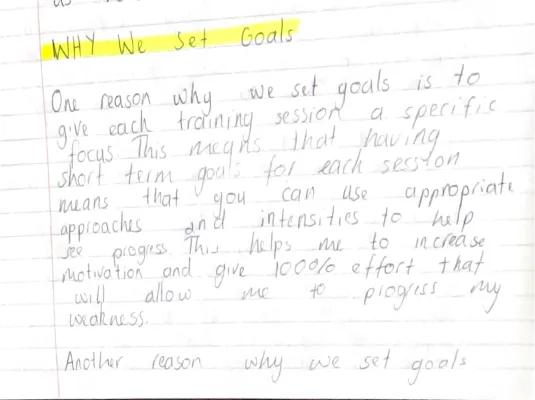 WHY We Set Goals
One reason why we set goals is to
give each training session a specific
focus. This means that having
short term goals for each session
means that you can use appropriate
approaches and intensities to help
see progress. This helps me to increase
motivation and give 100% effort that
will allow me to progress my
weakness.
Another reason why we set goals